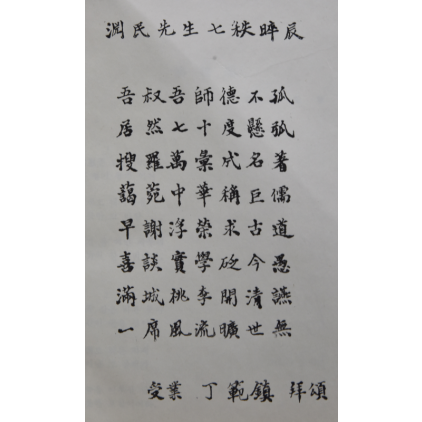 淵民先生七秩晬辰
吾叔吾師德不孤
居然七十度懸弧
搜羅萬彙成名著
藹苑中華稱巨儒
早謝浮榮求古道
喜談實學砭今愚
滿城桃李開清讌
一席風流曠世無
受業 丁範鎮 拜頌